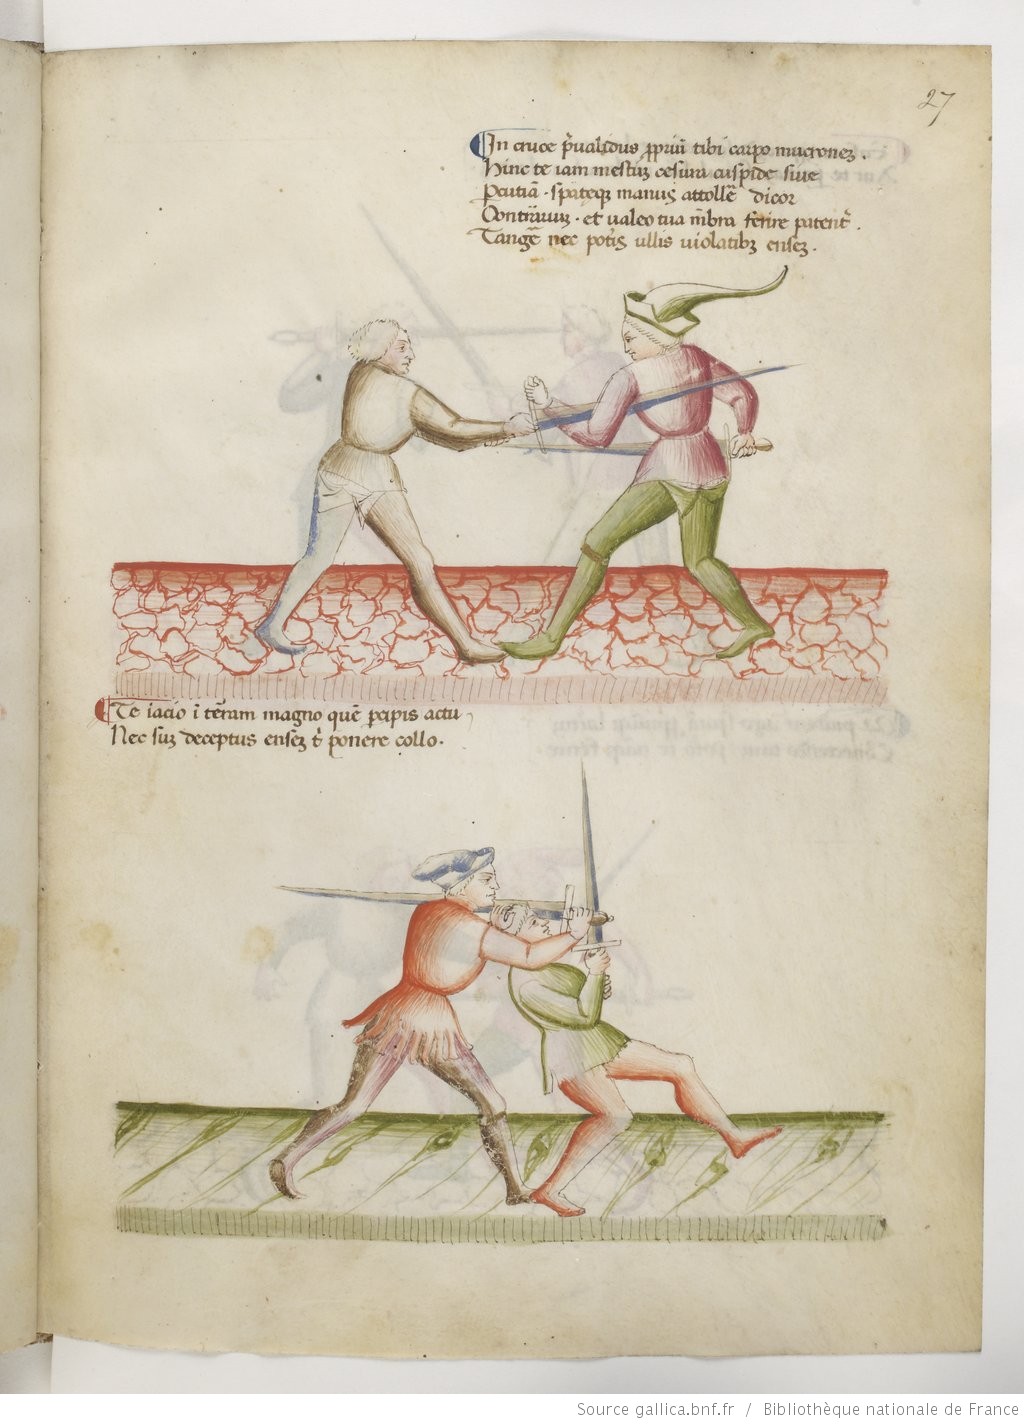 27
In cruce p̄ualidus ꝓpriū tibi carpo mucronez .
Hinc te iam mestuz cesura cuspide siue
Pcutiā · spateqz manus attollē dicor
Contrariuz · et ualeo tua mēbra ferire patent̄ .
Tangē nec potis ullis uiolatibz ensez .
Te iacio ī tēram magno quē pcipis actu
Nec suz deceptus ensez t̄ ponere collo ·
Source gallica.bnf.fr / Bibliothèque nationale de France